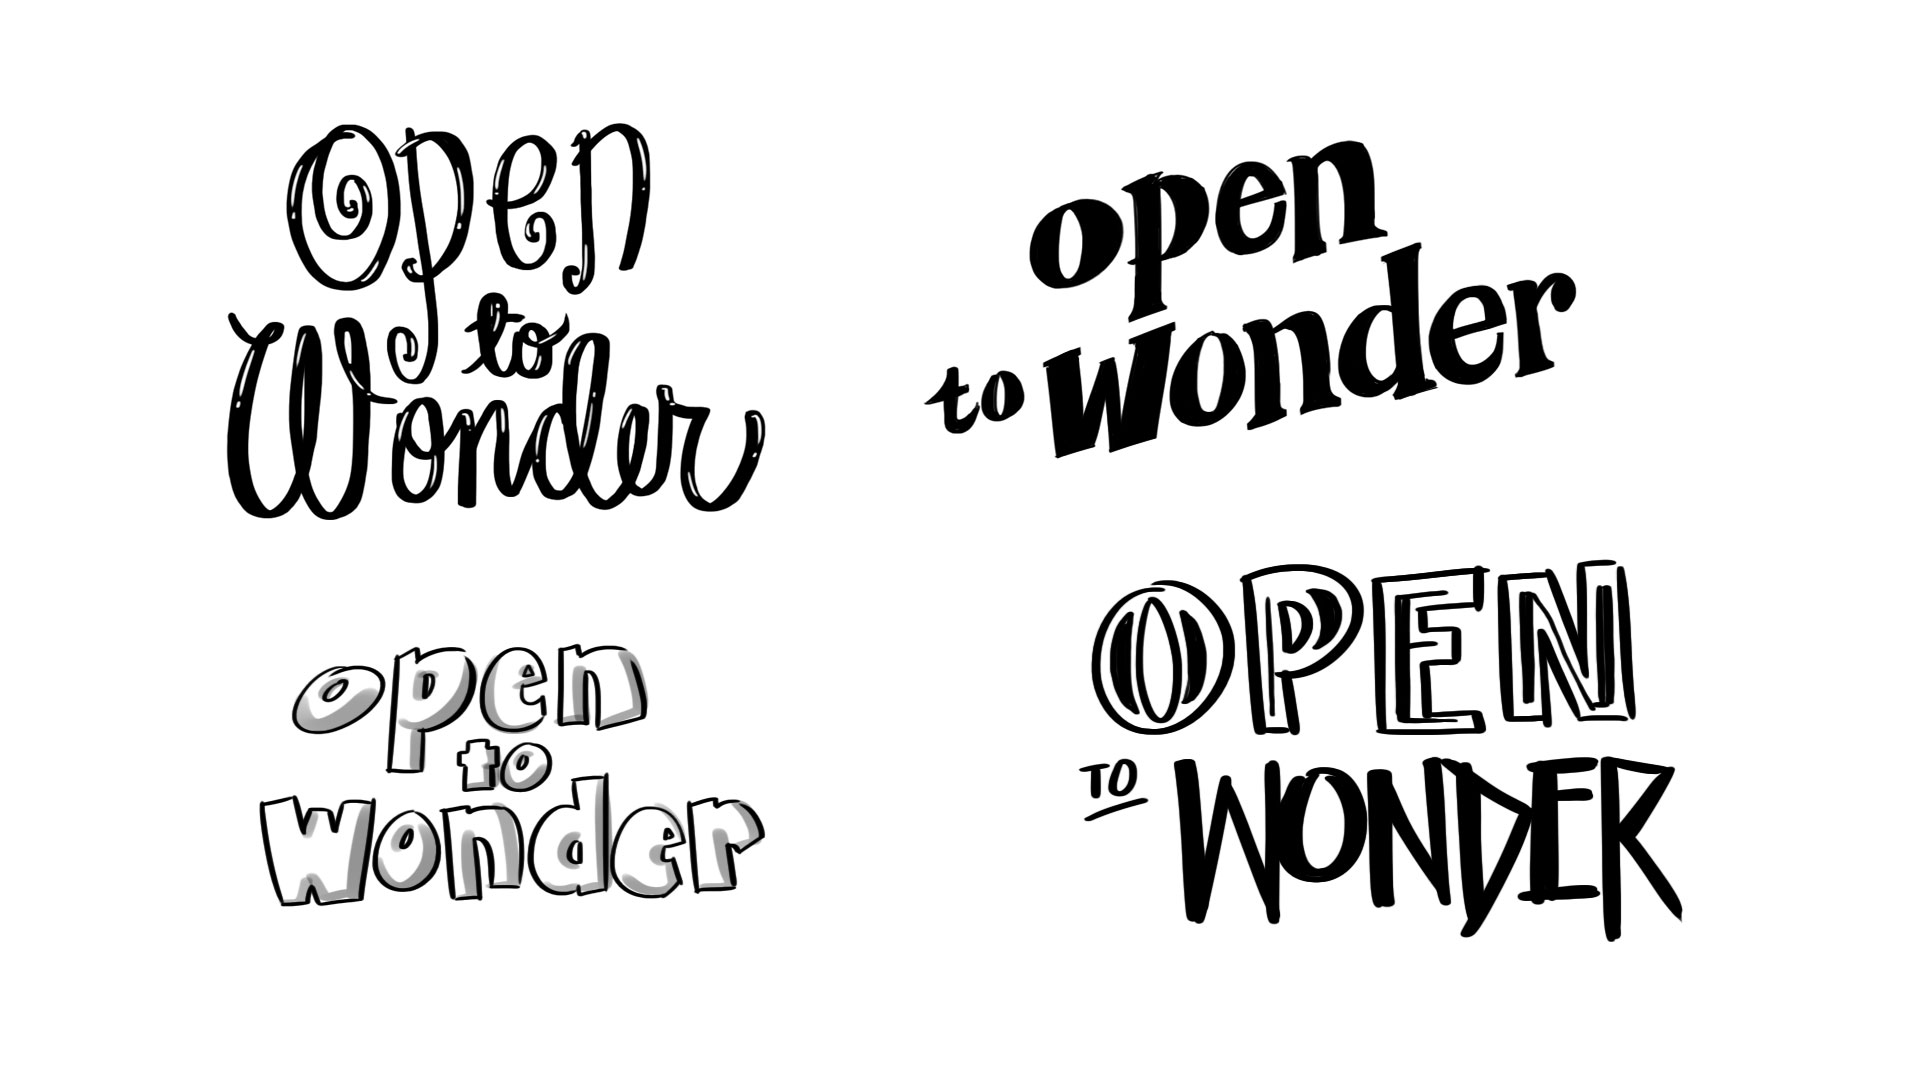 Open
to
Wonder
open
to wonder
open
to
wonder
OPEN
TO WONDER